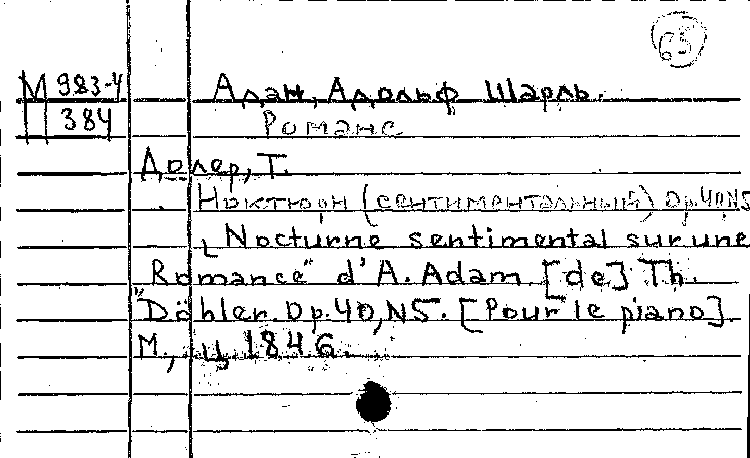 65
М 983-4
384
Адан, Адольф Шарль.
Романс
Долер, Т.
Ноктюрн (сентиментальный) Op.40,N5
„Nocturne sentimental sur une
Romance" d'A. Adam [de] Th.
Döhler. Op.40,N5. [Pour le piano].
М., ц. 1846.